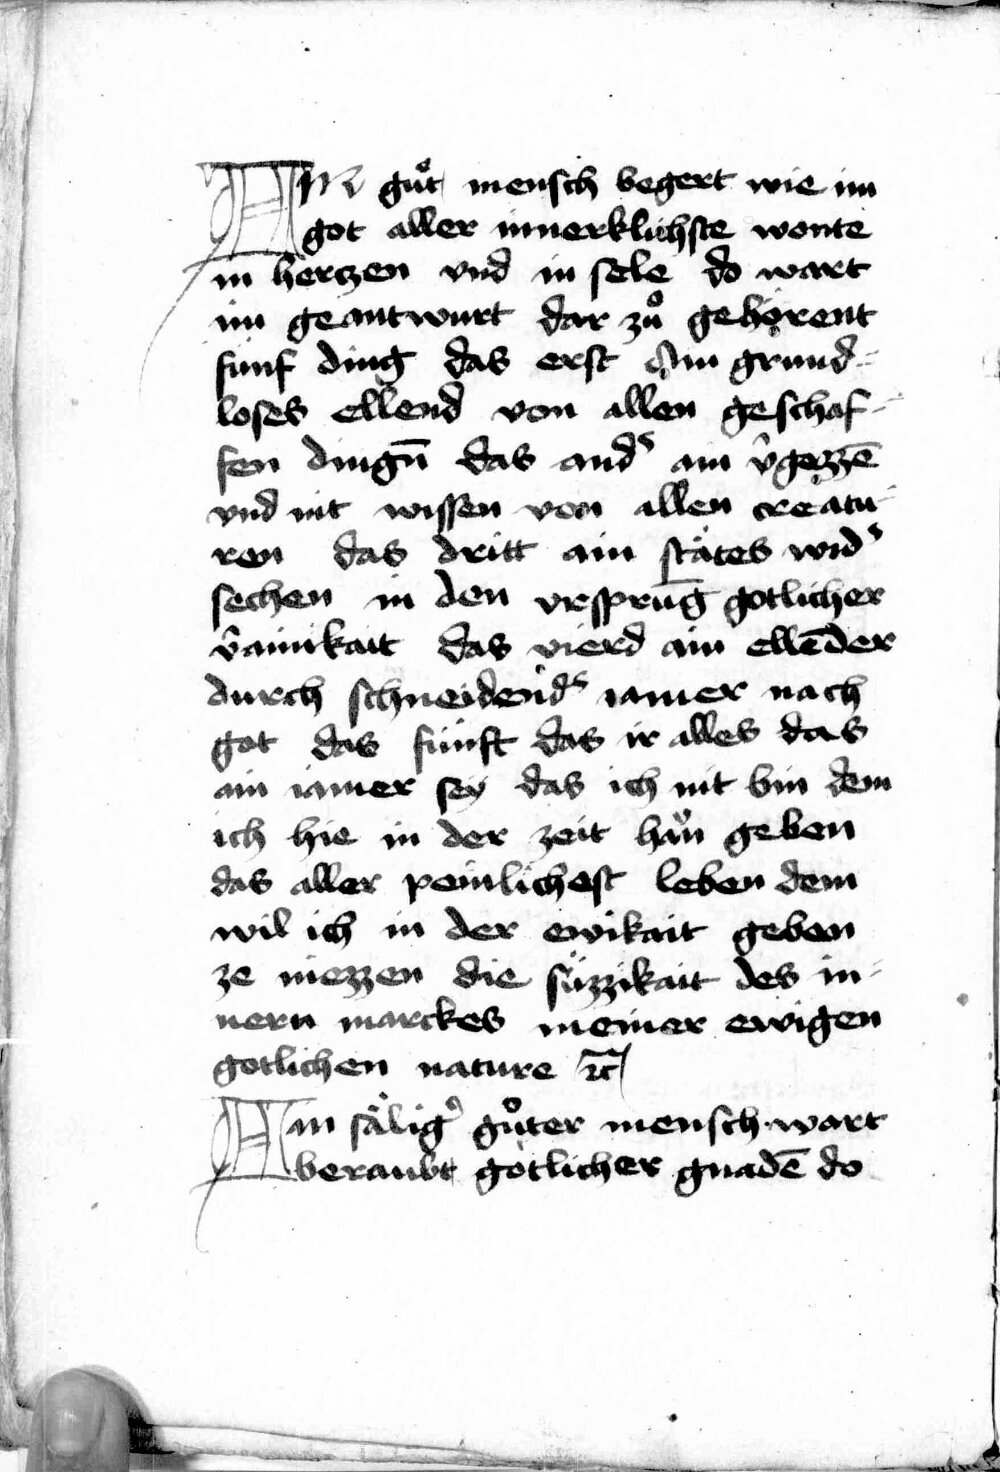 AIN guͦt mensch begert wie im
got aller innerklichste wonte
in hertzen vnd in sele do wart
im geantwurt dar zuͦ gehörent
fünf ding das erst Ain grund-
loses ellend von allen geschaf-
fen dingn̄ das and᾽ ain v̂gezzē
vnd nit wissen von allen creatu-
ren das dritt ain stätes wid᾽
sechen in den vrsprūg gotlicher
v̂ainikait das vierd ain ellēder
durch schneidend᾽ iamer nach
got das fünft das ir alles das
ain iamer sey das ich nit bin dem
ich hie in der zeit haͮn geben
das aller peinlichest leben dem
wil ich in der ewikait geben
ze niezzen die süzzikait des in-
nern marckes meiner ewigen
gotlichen nature ⁊c̄
Ain sälig᾽ guͦter mensch wart
beraubt götlicher gnadē do